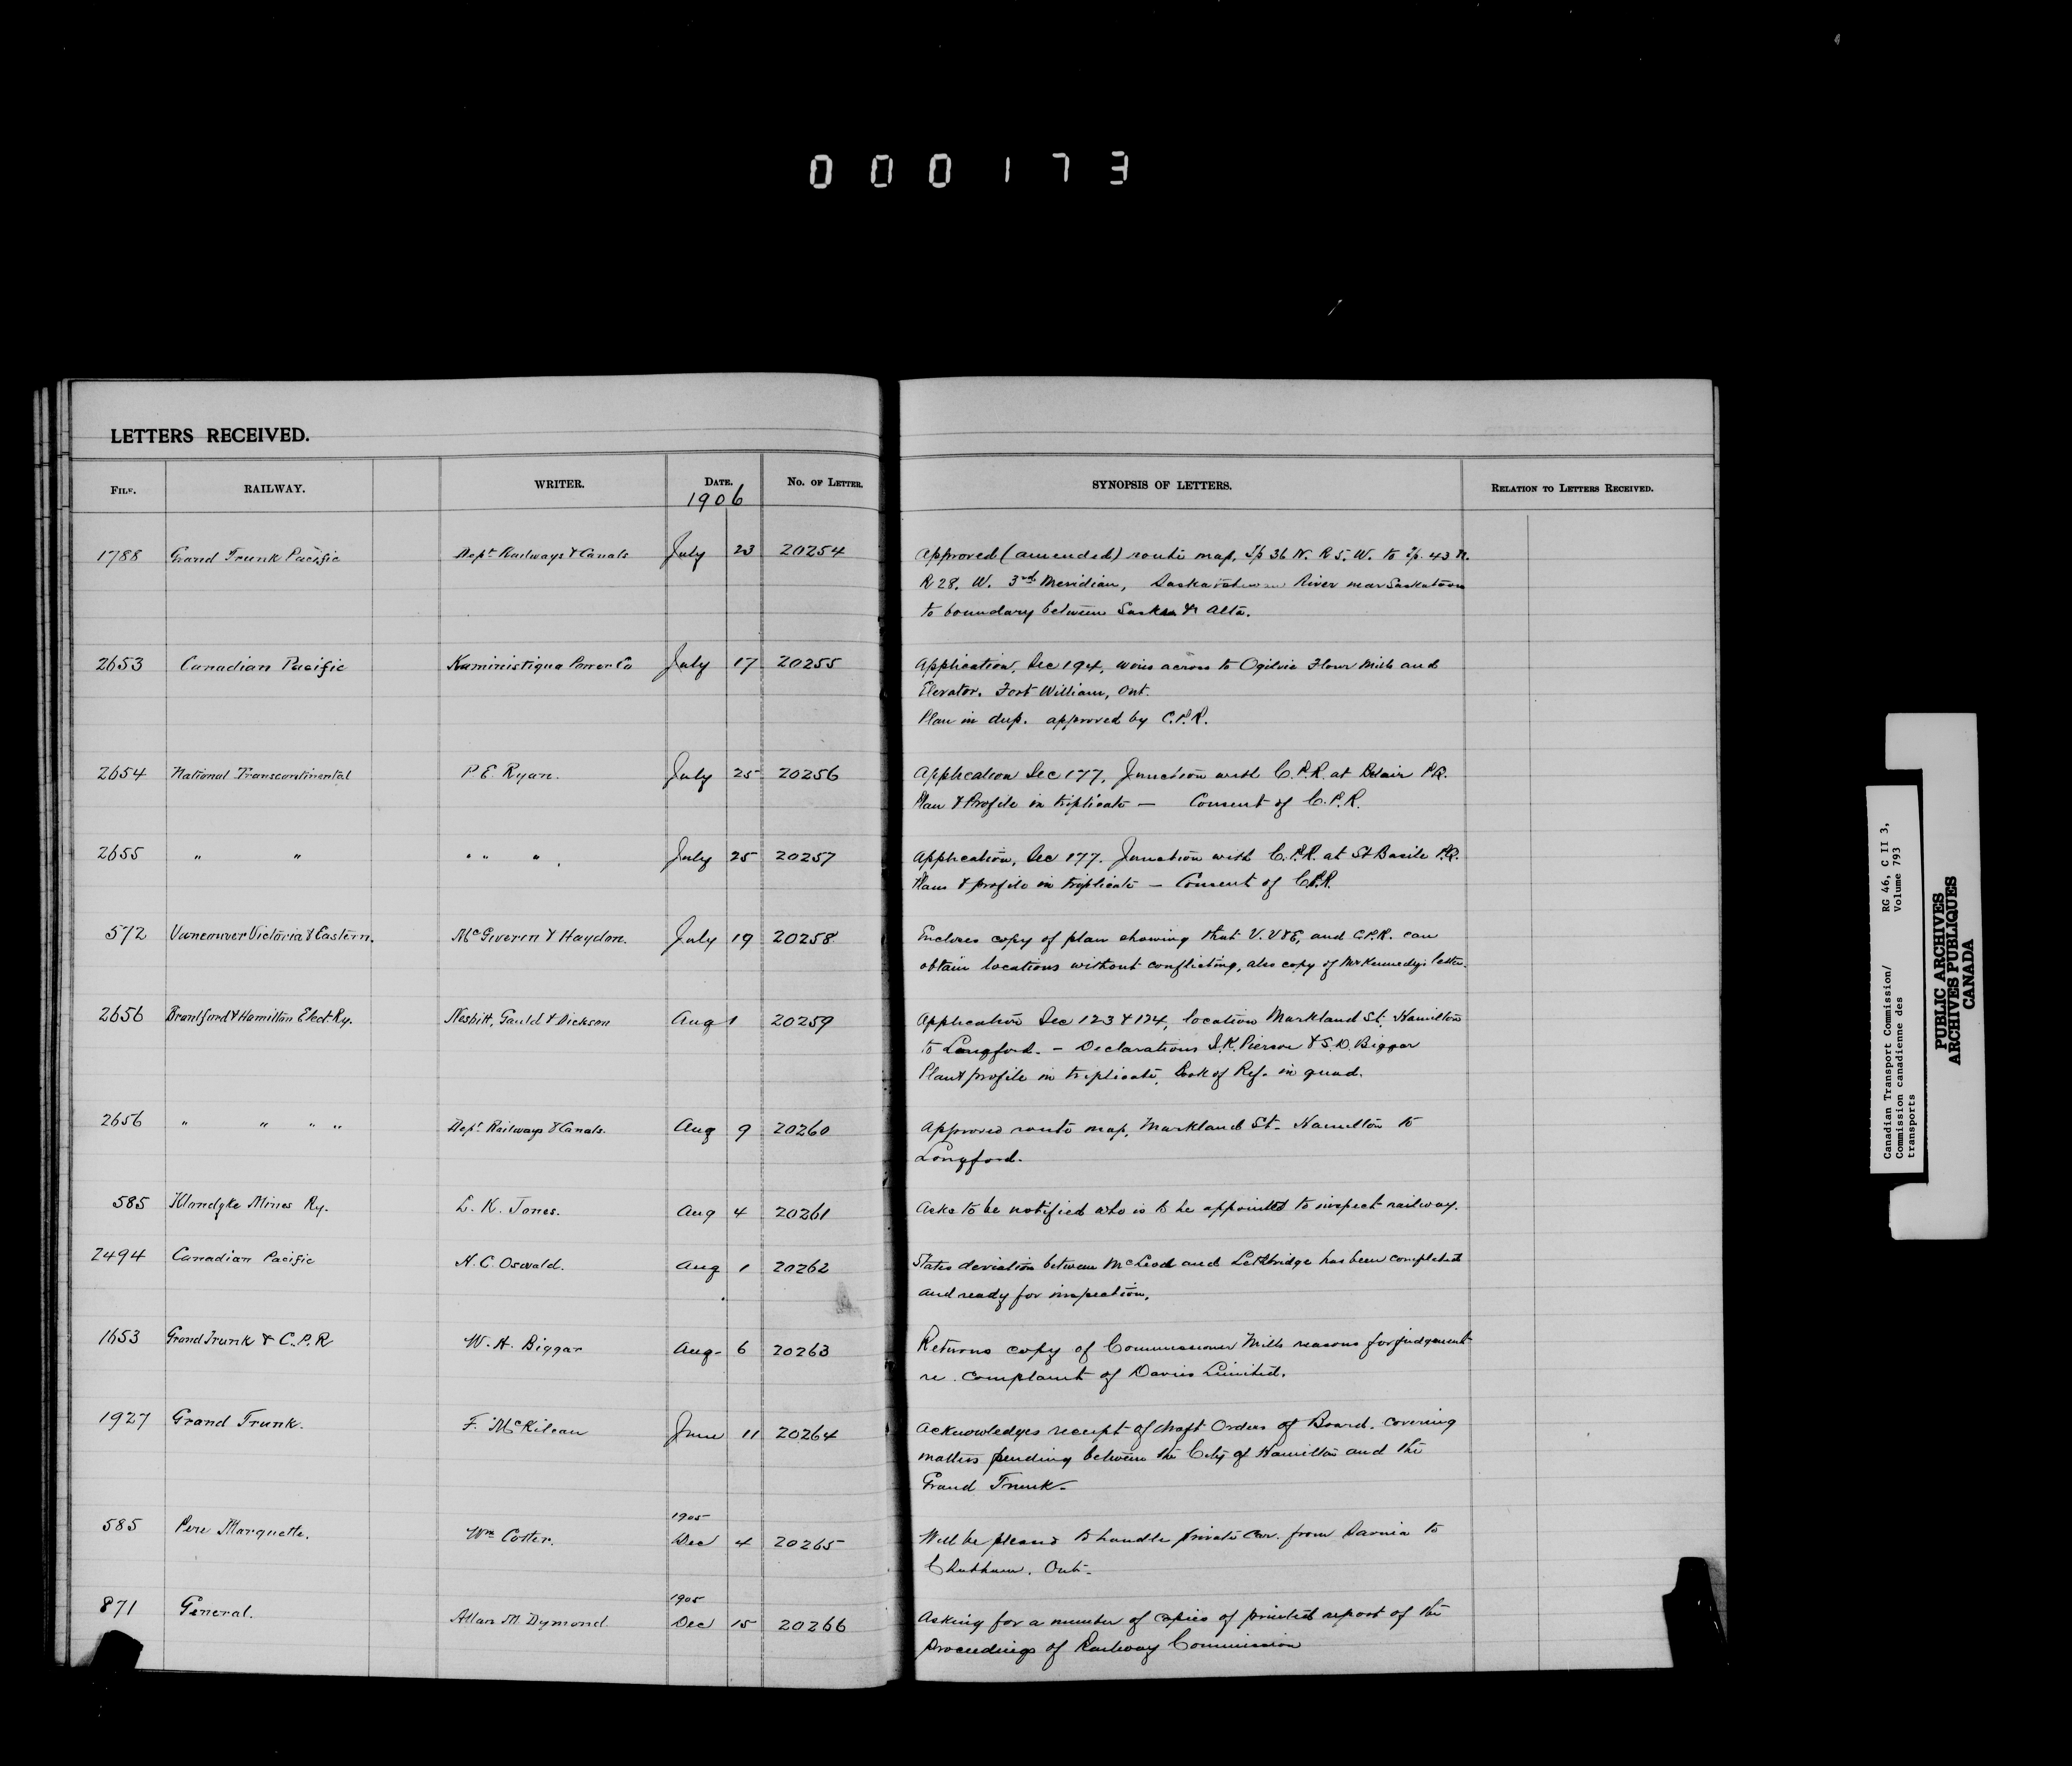 000173
LETTERS RECEIVED.
FILE. RAILWAY. WRITER. DATE. No. OF LETTER. SYNOPSIS OF LETTERS. RELATION TO LETTERS RECEIVED.
1906
1788 Grand Trunk Pacific Dept Railways & Canals July 23 20254 Approved (amended) route map, Tp 36 N. R 5. W. to Tp. 43 N.
R 28. W. 3rd Meridian, Saskatchewan River near Saskatoon
to boundary between Sask & Alta.
2653 Canadian Pacific Kaministiqua Power Co July 17 20255 Application, Sec 194, wires across to Ogilvie Flour Mills and
Elevator. Fort William, Ont.
Plan in dup. approved by C.P.R.
2654 National Transcontinental P. E. Ryan. July 25 20256 Application Sec 177, Junction with C.P.R. at Belair P.Q.
Plan & Profile in triplicate — Consent of C.P.R.
2655 " " " " " July 25 20257 Application, Sec 177. Junction with C.P.R. at St Basile P.Q.
Plans & profile in triplicate — Consent of C.P.R.
572 Vancouver Victoria & Eastern. McGiverin & Haydon. July 19 20258 Encloses copy of plan showing that V.V&E, and C.P.R. can
obtain locations without conflicting, also copy of Mr Kennedy's letter.
2656 Brantford & Hamilton Elect Ry. Nesbitt, Gauld & Dickson Aug 1 20259 Application Sec 123 & 124, location Markland St, Hamilton
to Langford. — Declarations J.K. Pierson & S.D. Biggar
Plan & profile in triplicate, Book of Ref. in quad.
2656 " " " " Dept Railways & Canals. Aug 9 20260 Approved route map, Markland St. Hamilton to
Langford.
585 Klondyke Mines Ry. L. K. Jones. Aug 4 20261 Asks to be notified who is to be appointed to inspect railway.
2494 Canadian Pacific H. C. Oswald. Aug 1 20262 States deviation between McLeod and Lethbridge has been completed
and ready for inspection.
1653 Grand Trunk & C.P.R W. H. Biggar Aug- 6 20263 Returns copy of Commissioner Mills reasons for judgement
re. complaint of Davies Limited.
1927 Grand Trunk. F. McKilcan June 11 20264 Acknowledges receipt of draft Orders of Board. covering
matters pending between the City of Hamilton and the
Grand Trunk-
1905
585 Pere Marquette. Wm Cotter. Dec 4 20265 Will be pleased to handle private car. from Sarnia to
Chatham. Ont.
1905
871 General. Allan M. Dymond. Dec 15 20266 Asking for a number of copies of printed report of the
proceedings of Railway Commission
Canadian Transport Commission/ RG 46, C II 3,
Commission canadienne des Volume 793
transports
PUBLIC ARCHIVES
ARCHIVES PUBLIQUES
CANADA